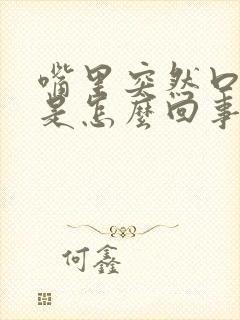 嘴里突然口
是怎麼回事
何鑫